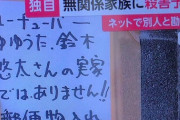 独自
無関係家族に殺害予
ネットで別人と勘
ーチューバー
ゆゆうた、鈴木
悠太さんの実家
ではありません!!
郵便物入れ